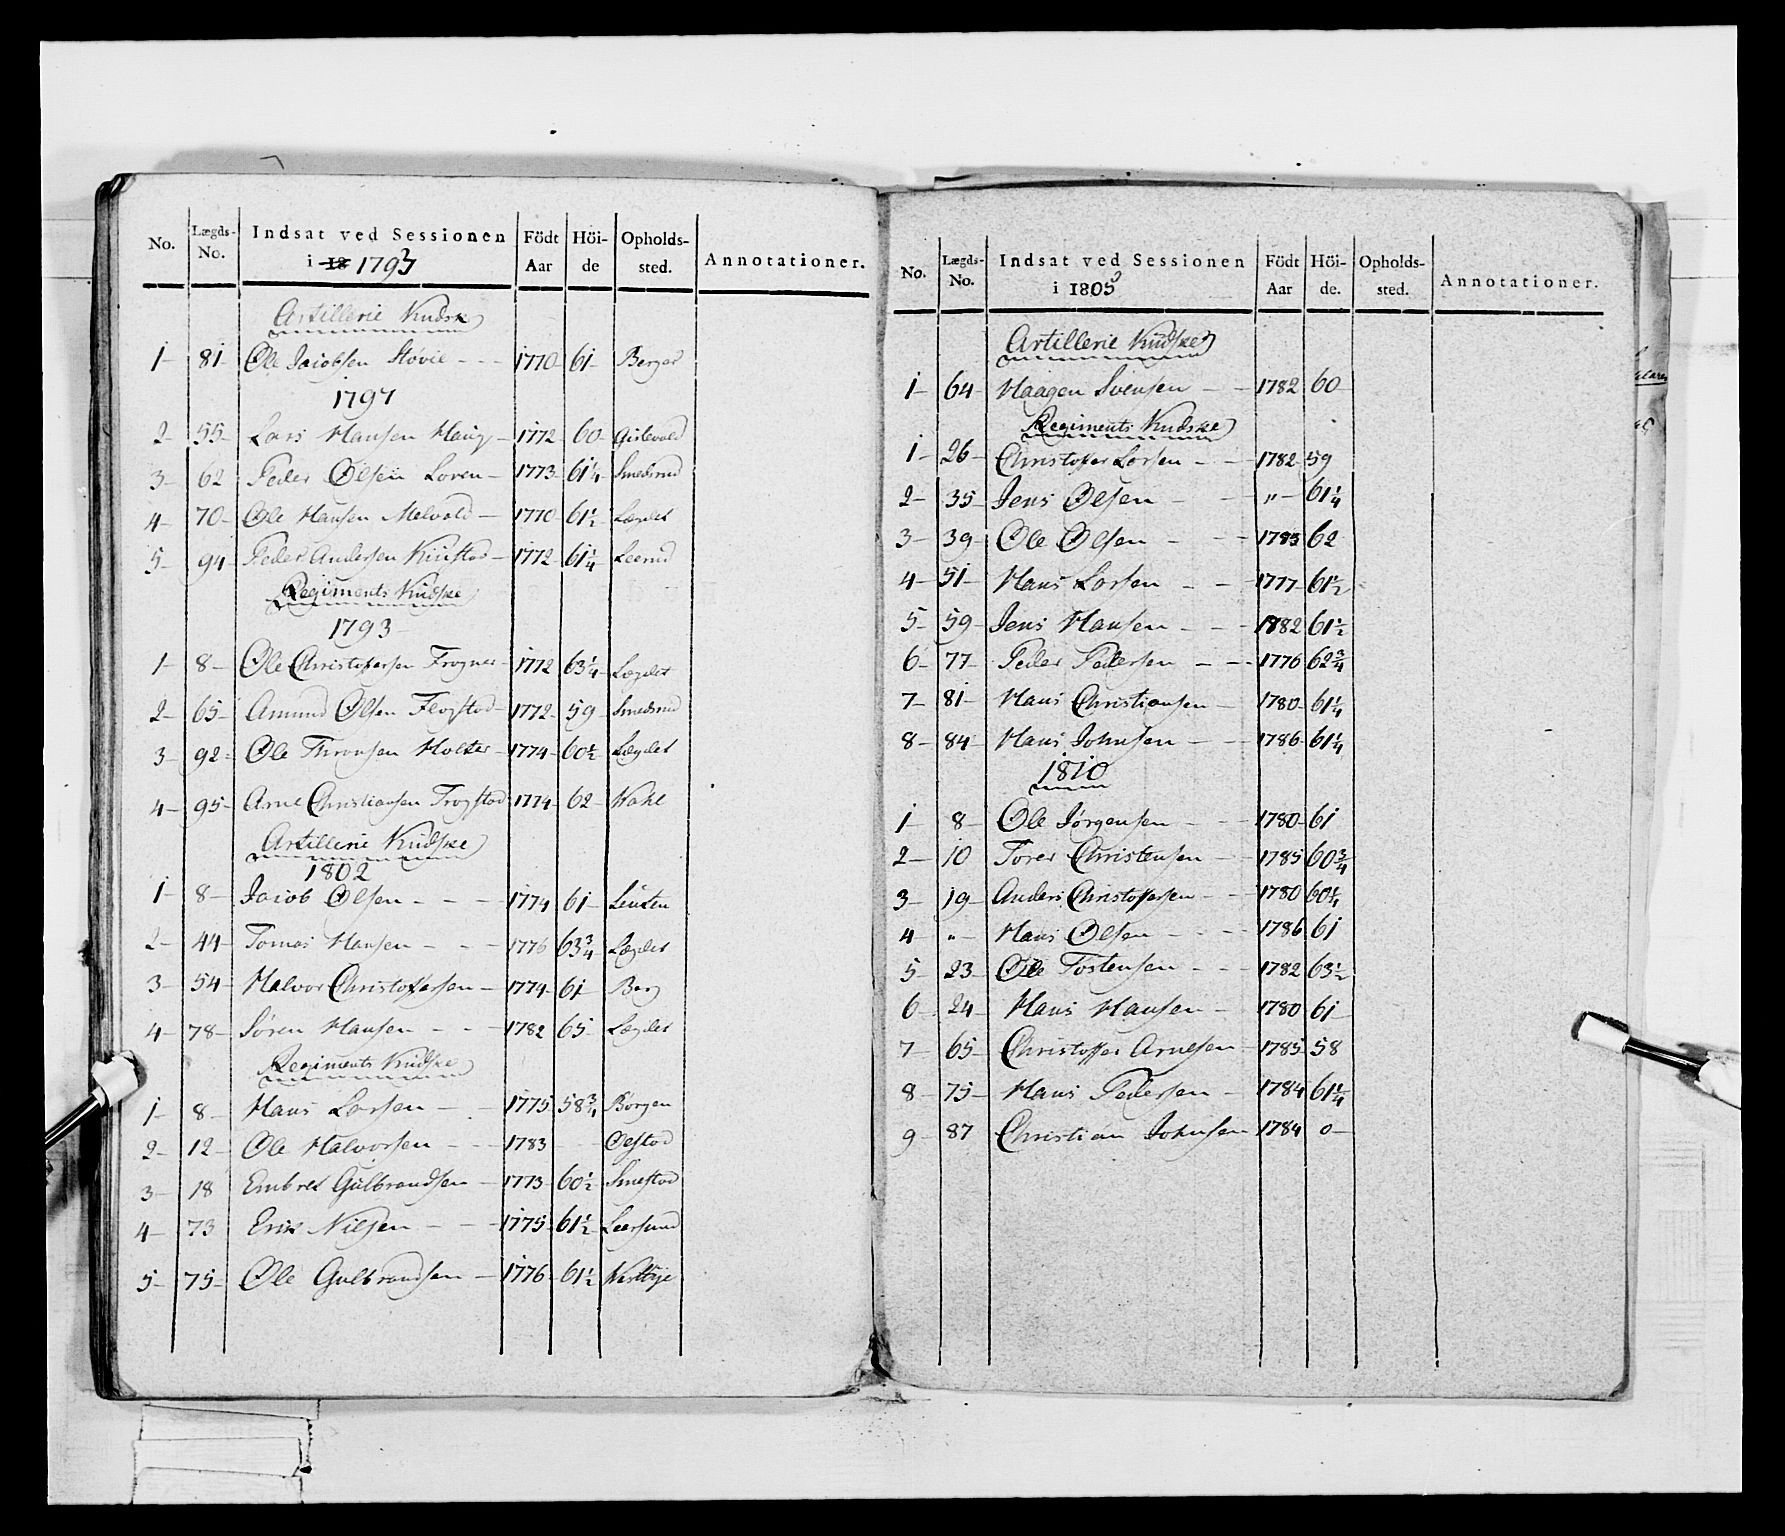 No. Lægds-No. Indsat ved Sessionen i 18 1793 Födt Aar Höi-de Opholds-sted. Annotationer.
Artillerie Kudsk
1- 81- Ole Jacobsen Støvie - - - 1770- 61- Berger
1797
2- 55- Lars Hansen Haug- 1772- 60- Gislevold
3- 62 Peder Olsen Loren- 1773- 61¼- Smedsrud
4- 70- Ole Hansen Melvold- 1770- 61½ Lægdet
5- 94 Peder Andersen Kiustad- 1772- 61¼ Leerud
Regiments Kudske
1793-
1- 8- Ole Christophersen Frogner- 1772 63¼- Lægdet
2- 65- Amund Olsen Flogstad- 1772- 59- Smedsrud
3- 92- Ole Thronsen Holter- 1774- 60½ Lægdet
4- 95- Arne Christiansen Frogstad- 1774- 62- Hohl
Artillerie Kudske
1802
1- 8- Jacob Olsen - - - 1774 61- Leuten
2- 44- Tomas Hansen - - - 1776 63¾ Lægdet
3- 54- Halvor Christoffersen- 1774- 61 Berg
4- 78- Sören Hansen - - - 1782 65- Lægdet
Regiments Kudske
1- 8- Hans Larsen - - 1775 58¾ Børgen
2- 12- Ole Halvorsen - - - 1783 Oestad
3- 18 Embret Gulbrandsen- 1773- 60½ Smestad
4- 73 Erik Nilsen - - - 1775- 61½ Leersund
5- 75- Ole Gulbrandsen- 1776- 61½ Nestbye
No. Lægds-No. Indsat ved Sessionen i 1805 Födt Aar Höi-de. Opholds-sted. Annotationer.
Artillerie Kudske
1- 64- Haagen Svensen - - 1782 60
Regiments Kudske
1- 26- Christoffer Larsen - - 1782- 59
2- 35 Jens Olsen - - "- 61¼
3- 39- Ole Olsen - - - 1785 62
4- 51- Hans Larsen - - 1777- 61½
5- 59- Jens Hansen - - - 1782 61½
6- 77- Peder Pedersen - - - 1776 62¾
7- 81- Hans Christiansen- 1780- 61¼
8- 84- Hans Johnsen - - 1786- 61¼
1810
1- 8- Ole Jørgensen - - 1780- 61
2- 10 Torer Christensen - - 1785 60¾
3- 19- Anders Christoffersen - - 1780 60¼
4 "- Hans Olsen - - - 1786 61
5- 23- Ole Tostensen - - 1782 63½
6 24- Hans Hansen - 1780 61
7- 65- Christoffer Arnesen- 1785 58
8- 75- Hans Pedersen - 1784 61¼
9- 87 Christian Johnsen 1784 0-